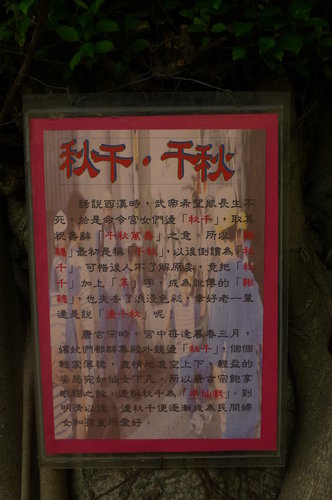 秋千·千秋
話說西漢時，武帝希望能長生不
死，於是命令宮女們盪「秋千」，取其
祝壽辭「千秋萬壽」之意。所以「鞦
韆」最初是稱「千秋」，以後倒讀為「秋
千」。可惜後人不了解原委，竟把「秋
千」加上「革」字，成為訛傳的「鞦
韆」，也失去了浪漫色彩，幸好老一輩
還是說「盪千秋」呢！
唐玄宗時，宮中每逢暮春三月，
嬪妃們都群集殿外競盪「秋千」，個個
輕裳薄裙，盡情地凌空上下，輕盈的
姿態宛如仙女下凡，所以唐玄宗飽享
眼福之餘，遂稱秋千為「半仙戲」。到
明清以後，盪秋千便逐漸成為民間婦
女和孩童的愛好。